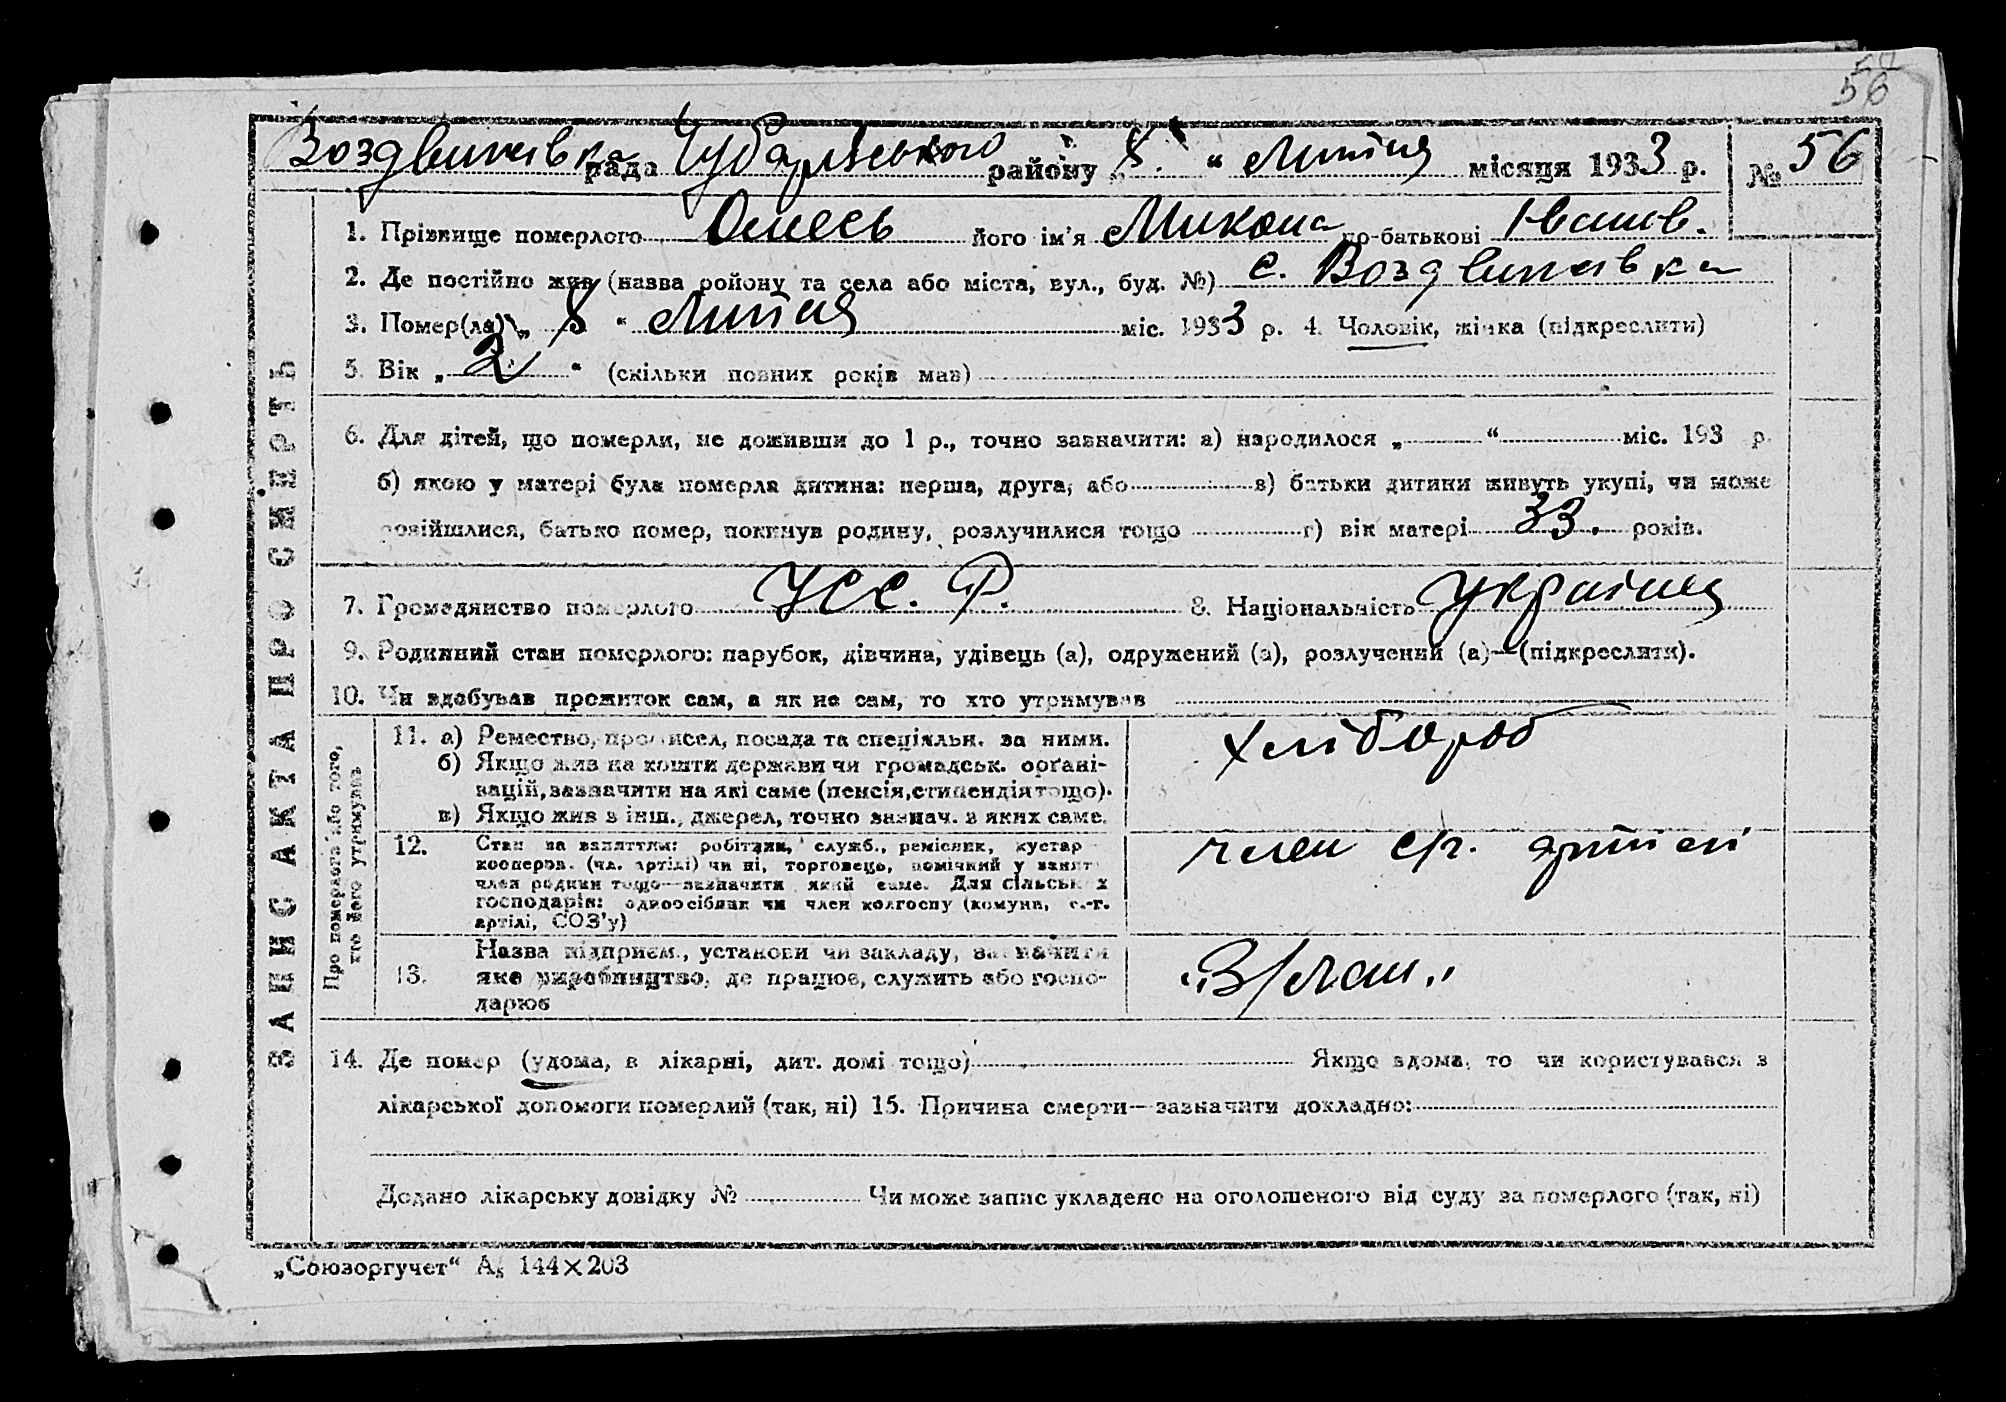 56
Воздвижівка рада Чубарівського району „8." Липня місяця 1933 р. № 56
1. Прізвище померлого Олесь його ім'я Микола по-батькові Іванов.
2. Де постійно жив (назва району та села або міста, вул., буд. №) с. Воздвижівка
3. Помер(ла) „8" Липня міс. 1933 р. 4. Чоловік, жінка (підкреслити)
5. Вік „2" (скільки повних років мав)
6. Для дітей, що померли, не доживши до 1 р., точно зазначити: а) народилося „ " міс. 193 р.
б) якою у матері була померла дитина: перша, друга, або в) батьки дитини живуть укупі, чи може
розійшлися, батько помер, покинув родину, розлучилися тощо г) вік матері 33. років.
7. Громадянство померлого УСС.Р. 8. Національність українец
9. Родинний стан померлого: парубок, дівчина, удівець (а), одружений (а), розлучений (а)—(підкреслити).
10. Чи здобував прожиток сам, а як не сам, то хто утримував
ЗАПИС АКТА ПРО СМЕРТЬ
Про померлого або того,
хто його утримував
11. а) Ремество, промисел, посада та спеціяльн. за ними. хлібороб
б) Якщо жив на кошти держави чи громадськ. орґані-
зацій, зазначити на які саме (пенсія, стипендія тощо).
в) Якщо жив з інш., джерел, точно зазнач. з яких саме.
12. Стан за заняттям: робітник, служб., ремісник, кустар член с/г. артілі
кооперов. (чл. артілі) чи ні, торговець, помічний у занят
член родини тощо—зазначити який саме. Для сільських
господарів: одноосібник чи член колгоспу (комуни, с.-г.
артілі, СОЗ'у)
13. Назва підприєм., установи чи закладу, зазначити
яке виробництво, де працює, служить або госпо-
дарює
14. Де помер (удома, в лікарні, дит. домі тощо) Якщо вдома, то чи користувався з
лікарської допомоги померлий (так, ні) 15. Причина смерти—зазначити докладно:
Додано лікарську довідку № Чи може запис укладено на оголошеного від суду за померлого (так, ні)
„Союзоргучет" А₅ 144×203